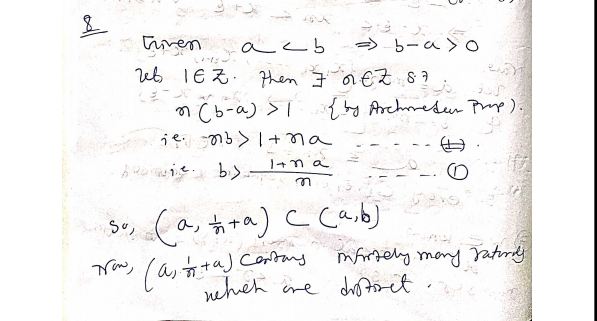 8
Given a < b ⇒ b-a > 0
let 1 ∈ Z. Then ∃ n ∈ Z s.t.
n(b-a) > 1 {by Archimedean Prop).
i.e. nb > 1 + na ------
i.e. b > (1+na)/n ------ ①
So, (a, 1/n + a) ⊂ (a,b)
Now, (a, 1/n + a) contains infinitely many rationals
which are distinct.